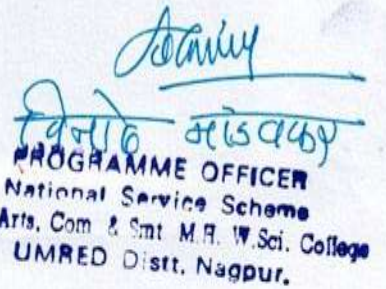 विनोद मांडवकर
PROGRAMME OFFICER
National Service Scheme
Arts, Com & Smt M.H. W.Sci. College
UMRED Distt, Nagpur.